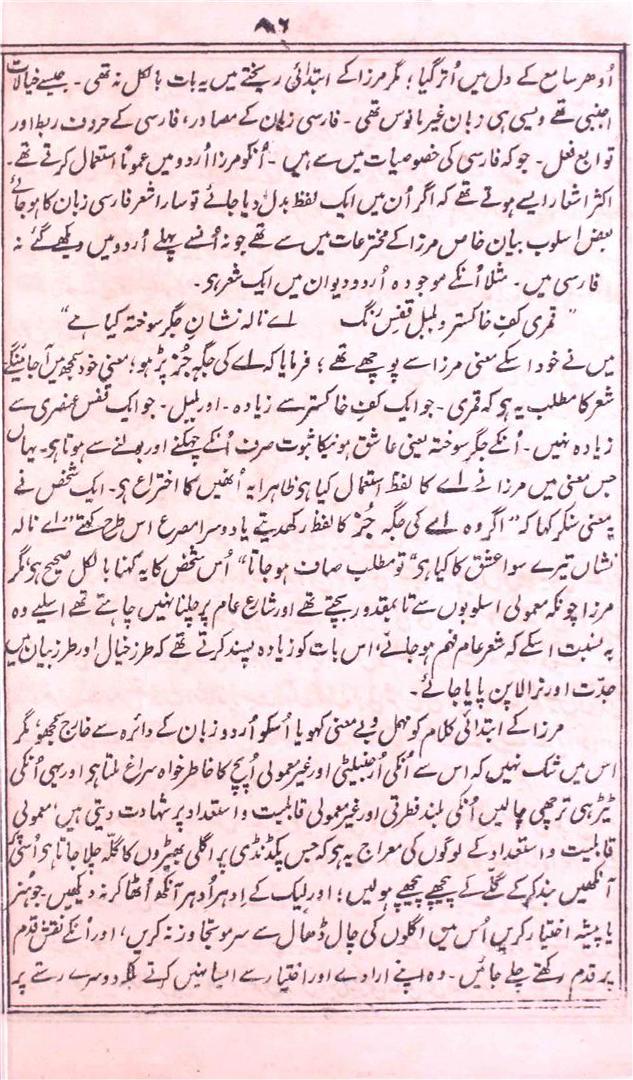 ۸۶
اُدھر سامع کے دل میں اُتر گیا؛ مگر مرزا کے ابتدائی ریختے میں یہ بات بالکل نہ تھی۔ جیسے خیالات
اجنبی تھے ویسی ہی زبان غیر مانوس تھی۔ فارسی زبان کے مصادر، فارسی کے حروف ربط اور
توابع فعل۔ جو کہ فارسی کی خصوصیات میں سے ہیں۔ اُنکو مرزا اُردو میں عموماً استعمال کرتے تھے۔
اکثر اشعار ایسے ہوتے تھے کہ اگر اُن میں ایک لفظ بدل دیا جائے تو سارا شعر فارسی زبان کا ہو جائے
بعض اسلوب بیان خاص مرزا کے مخترعات میں سے تھے جو نہ اُنسے پہلے اُردو میں دیکھے گئے نہ
فارسی میں۔ مثلاً اُنکے موجودہ اُردو دیوان میں ایک شعر ہو۔
"قمری کفِ خاکستر و بلبل قفسِ رنگ اے نالہ نشانِ جگر سوختہ کیا ہے"
میں نے خود اسکے معنی مرزا سے پوچھے تھے؛ فرمایا کہ اے کی جگہ جُز پڑھو؛ معنی خود سمجھ میں آجائینگے
شعر کا مطلب یہ ہو کہ قمری۔ جو ایک کفِ خاکستر سے زیادہ۔ اور بلبل۔ جو ایک قفس عنصری سے
زیادہ نہیں۔ اُنکے جگر سوختہ یعنی عاشق ہونیکا ثبوت صرف اُنکے چہکنے اور بولنے سے ہوتا ہو۔ یہاں
جس معنی میں مرزا نے اے کا لفظ استعمال کیا ہو ظاہرا یہ اُنھیں کا اختراع ہو۔ ایک شخص نے
یہ معنی سنکر کہا کہ "اگر وہ اے کی جگہ جُز کا لفظ رکھدیتے یا دوسرا مصرع اس طرح کہتے "اے نالہ
نشاں تیرے سوا عشق کا کیا ہی" تو مطلب صاف ہو جاتا" اُس شخص کا یہ کہنا بالکل صحیح ہو مگر
مرزا چونکہ معمولی اسلوبوں سے تا بمقدور بچتے تھے اور شارع عام پر چلنا نہیں چاہتے تھے اسلیے وہ
بہ نسبت اسکے کہ شعر عام فہم ہو جائے، اس بات کو زیادہ پسند کرتے تھے کہ طرز خیال اور طرز بیان میں
جدّت اور نرالا پن پایا جائے۔
مرزا کے ابتدائی کلام کو مہمل و بے معنی کہو یا اُسکو اُردو زبان کے دائرہ سے خارج سمجھو، مگر
اس میں شک نہیں کہ اس سے اُنکی اُرجنیلیٹی اور غیر معمولی اُپج کا خاطر خواہ سراغ ملتا ہو اور یہی اُنکی
ٹیڑھی ترچھی چالیں اُنکی بلند فطرتی اور غیر معمولی قابلیت و استعداد پر شہادت دیتی ہیں، معمولی
قابلیت و استعداد کے لوگوں کی معراج یہ ہو کہ جس پگڈنڈی پر اگلی بھیڑوں کا گلّہ چلا جاتا ہو اُسی پر
آنکھیں بند کر کے گلّے کے پیچھے پیچھے ہو لیں؛ اور لیک کے اِدھر اُدھر آنکھ اُٹھا کر نہ دیکھیں جو ہنر
یا پیشہ اختیار کریں اُس میں اگلوں کی چال ڈھال سے سر مو تجاوز نہ کریں، اور اُنکے نقشِ قدم
پر قدم رکھتے چلے جائیں۔ وہ اپنے ارادے اور اختیار سے ایسا نہیں کرتے بلکہ دوسرے رستے پر